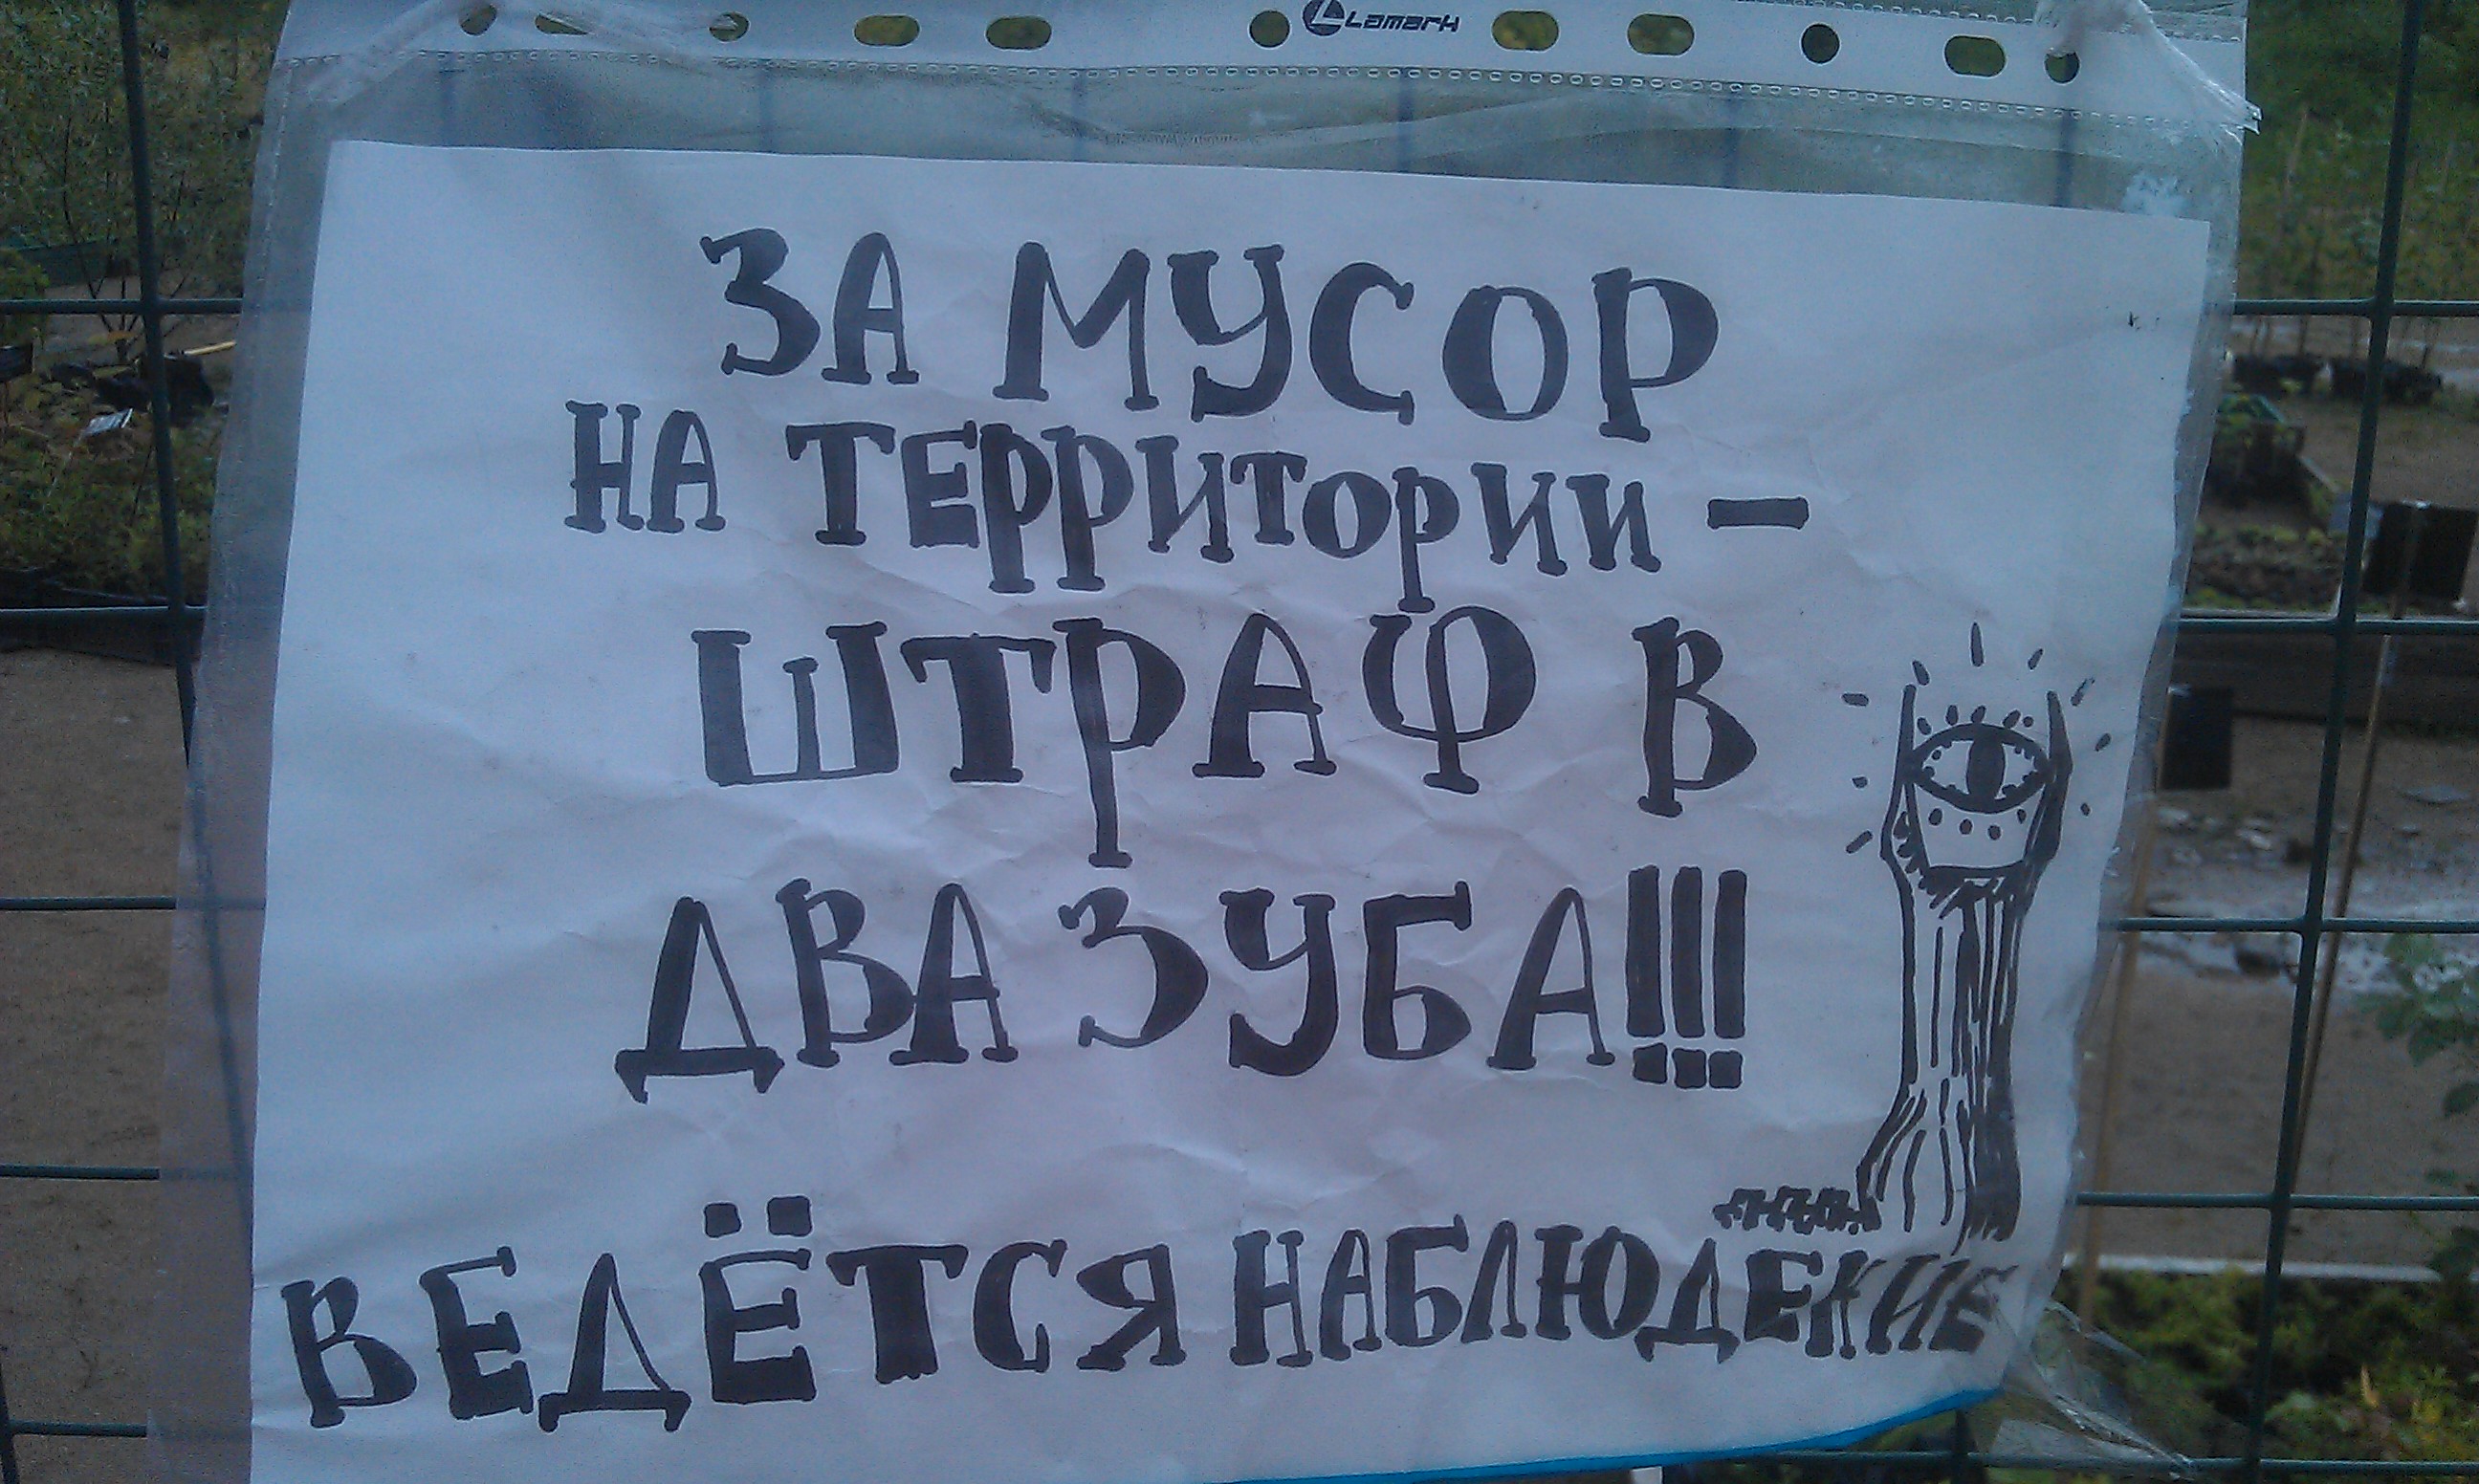 Lamark
ЗА МУСОР
НА ТЕРРИТОРИИ –
ШТРАФ В
ДВА ЗУБА!!!
ВЕДЁТСЯ НАБЛЮДЕНИЕ